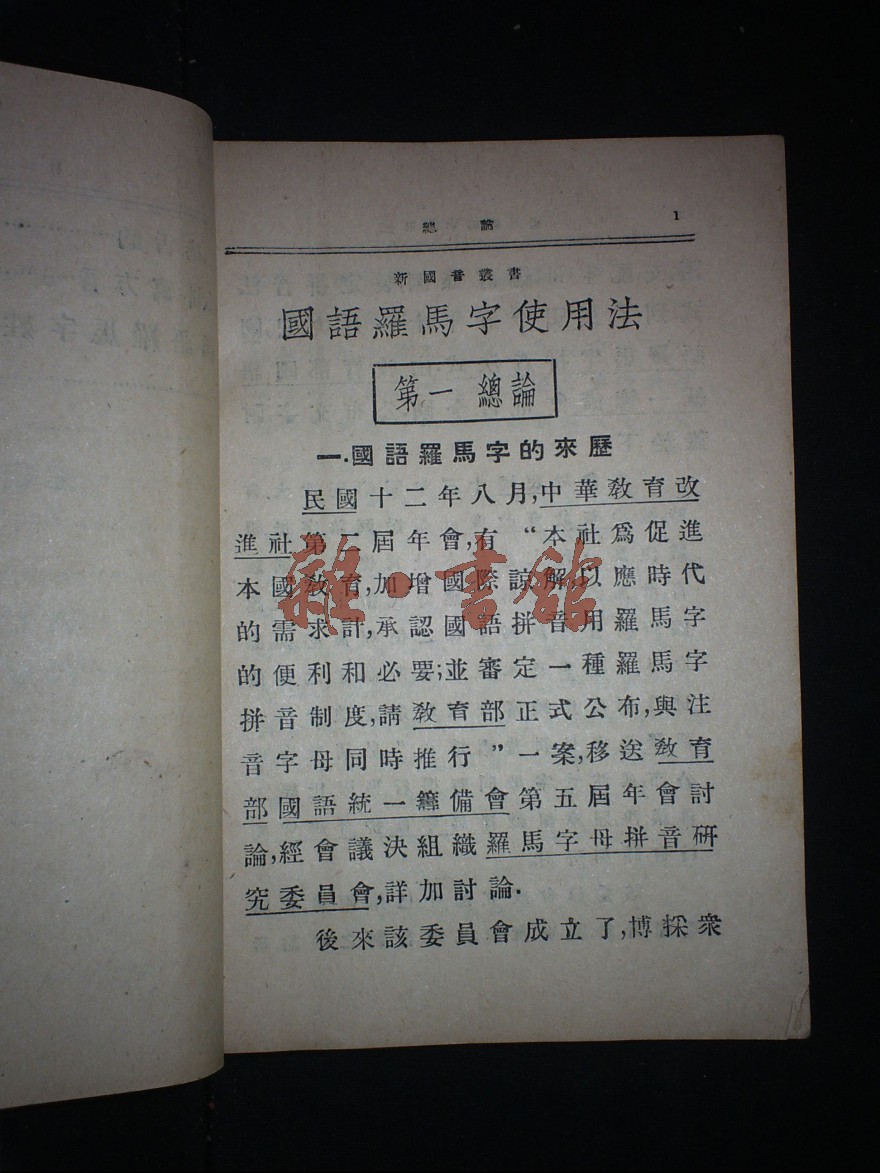 總論 1
新國音叢書
國語羅馬字使用法
第一 總論
一.國語羅馬字的來歷
民國十二年八月,中華教育改
進社第二屆年會,有“本社爲促進
本國教育,加增國際諒解以應時代
的需求計,承認國語拼音用羅馬字
的便利和必要;並審定一種羅馬字
拼音制度,請教育部正式公布,與注
音字母同時推行”一案,移送教育
部國語統一籌備會第五屆年會討
論,經會議決組織羅馬字母拼音研
究委員會,詳加討論.
後來該委員會成立了,博採衆
雜·書館